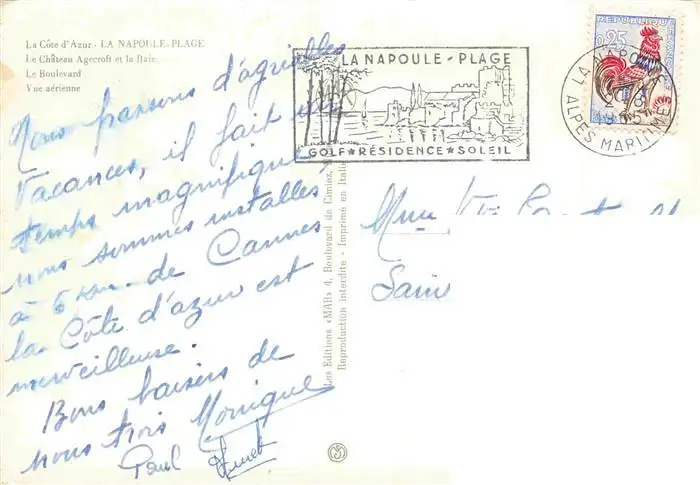 La Côte d'Azur - LA NAPOULE-PLAGE
Le Château Agecroft et la Baie
Le Boulevard
Vue aérienne
Nous passons d'agréables
Vacances, il fait un
temps magnifique
nous sommes installés
à 6 km. de Cannes
la Côte d'azur est
merveilleuse.
Bons baisers de
nous trois Monique
Paul
LA NAPOULE - PLAGE
GOLF★RÉSIDENCE★SOLEIL
0,25
LA NAPOULE
ALPES MARITIMES
Les Editions «MAR» 4, Boulevard de Cimiez,
Reproduction interdite - Imprimé en Italie
Mme